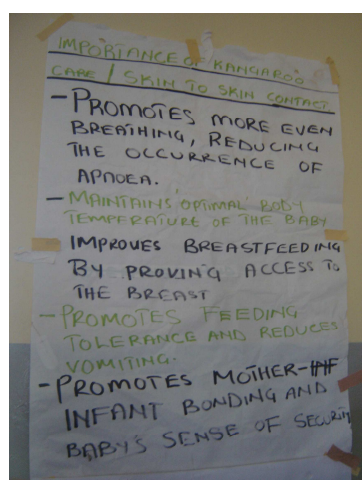 IMPORTANCE OF KANGAROO
CARE / SKIN TO SKIN CONTACT
- PROMOTES MORE EVEN
BREATHING, REDUCING
THE OCCURRENCE OF
APNOEA.
- MAINTAINS OPTIMAL BODY
TEMPERATURE OF THE BABY
IMPROVES BREASTFEEDING
BY PROVING ACCESS TO
THE BREAST
- PROMOTES FEEDING
TOLERANCE AND REDUCES
VOMITING.
- PROMOTES MOTHER-
INFANT BONDING AND
BABY'S SENSE OF SECURITY